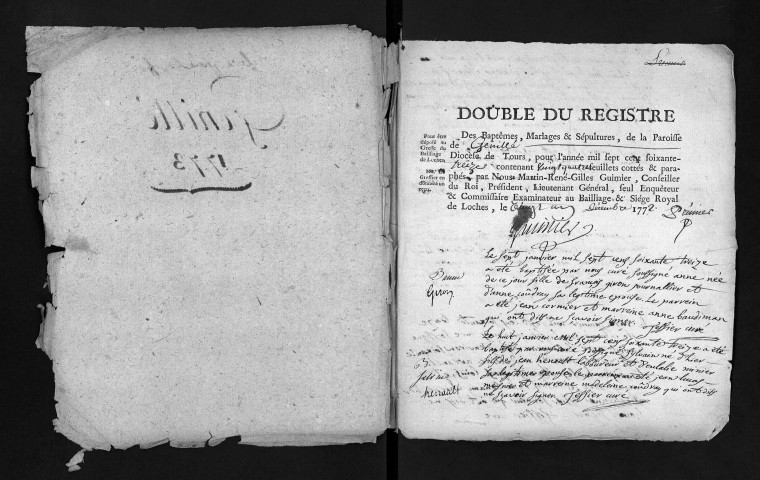 Genillé
1773
Premier
DOUBLE DU REGISTRE
Pour être
déposé au
Greffe du
Bailliage
de Loches.
Greffier en
Des Baptêmes, Mariages & Sépultures, de la Paroisse
de Genillé
Diocèse de Tours, pour l'année mil sept cent soixante-
treize contenant vingt quatre feuillets cottés & para-
phés par Nous Martin-René-Gilles Guimier, Conseiller
du Roi, Président, Lieutenant Général, seul Enquêteur
& Commissaire Examinateur au Bailliage & Siége Royal
de Loches, le décembre 1772 Premier
Guimier
Le sept janvier mil sept cens soixante treize
a été baptisée par nous curé soussigné anne née
de ce jour fille de françois giron journallier et
d'anne coudray sa legitime epouse. Le parrein
a été jean cormier et marreine anne baudiman
qui ont dit ne scavoir signer curé
giron
Le huit janvier mil sept cens soixante treize a été
baptisé par né d'hier
fils de jean henault laboureur et d'eulalie minier
sa legitime epouse le parrein a été jean
et marreine madelaine coudray qui ont dit
ne scavoir signer curé
henault